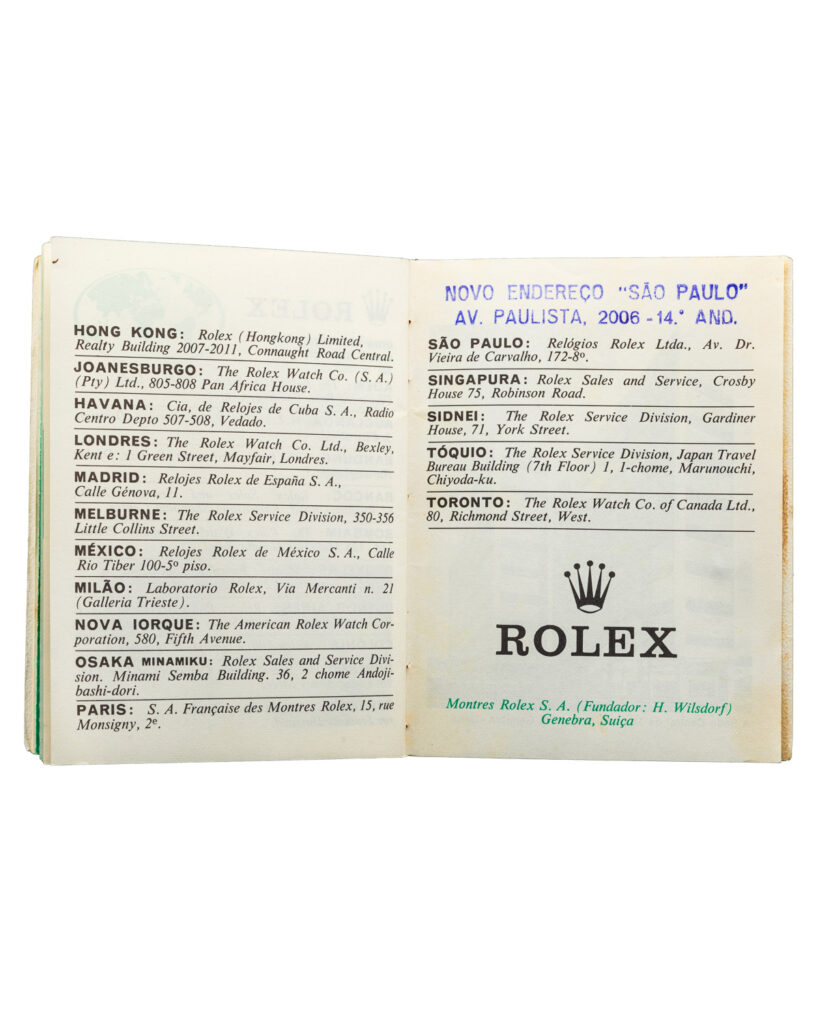 HONG KONG: Rolex (Hongkong) Limited,
Realty Building 2007-2011, Connaught Road Central.
JOANESBURGO: The Rolex Watch Co. (S. A.)
(Pty) Ltd., 805-808 Pan Africa House.
HAVANA: Cia, de Relojes de Cuba S. A., Radio
Centro Depto 507-508, Vedado.
LONDRES: The Rolex Watch Co. Ltd., Bexley,
Kent e: 1 Green Street, Mayfair, Londres.
MADRID: Relojes Rolex de España S. A.,
Calle Génova, 11.
MELBURNE: The Rolex Service Division, 350-356
Little Collins Street.
MÉXICO: Relojes Rolex de México S. A., Calle
Rio Tiber 100-5º piso.
MILÃO: Laboratorio Rolex, Via Mercanti n. 21
(Galleria Trieste).
NOVA IORQUE: The American Rolex Watch Cor-
poration, 580, Fifth Avenue.
OSAKA MINAMIKU: Rolex Sales and Service Divi-
sion. Minami Semba Building. 36, 2 chome Andoji-
bashi-dori.
PARIS: S. A. Française des Montres Rolex, 15, rue
Monsigny, 2e.
NOVO ENDEREÇO "SÃO PAULO"
AV. PAULISTA, 2006 - 14.º AND.
SÃO PAULO: Relógios Rolex Ltda., Av. Dr.
Vieira de Carvalho, 172-8º.
SINGAPURA: Rolex Sales and Service, Crosby
House 75, Robinson Road.
SIDNEI: The Rolex Service Division, Gardiner
House, 71, York Street.
TÓQUIO: The Rolex Service Division, Japan Travel
Bureau Building (7th Floor) 1, 1-chome, Marunouchi,
Chiyoda-ku.
TORONTO: The Rolex Watch Co. of Canada Ltd.,
80, Richmond Street, West.
ROLEX
Montres Rolex S. A. (Fundador: H. Wilsdorf)
Genebra, Suiça